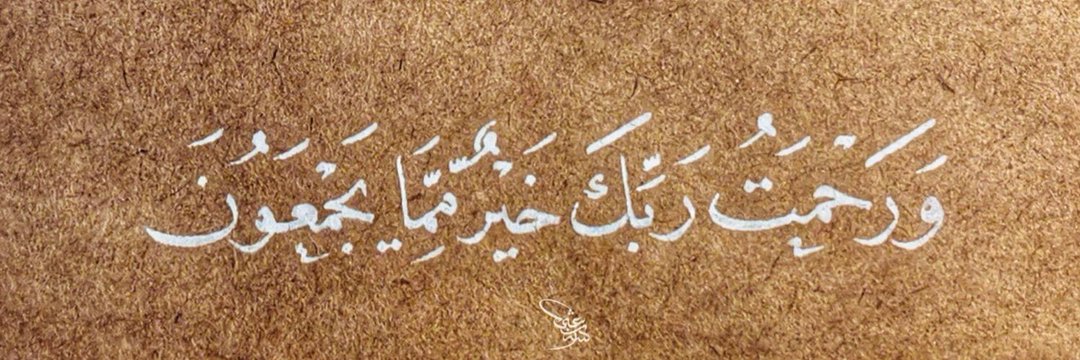 وَرَحْمَتُ رَبِّكَ خَيْرٌ مِّمَّا يَجْمَعُونَ